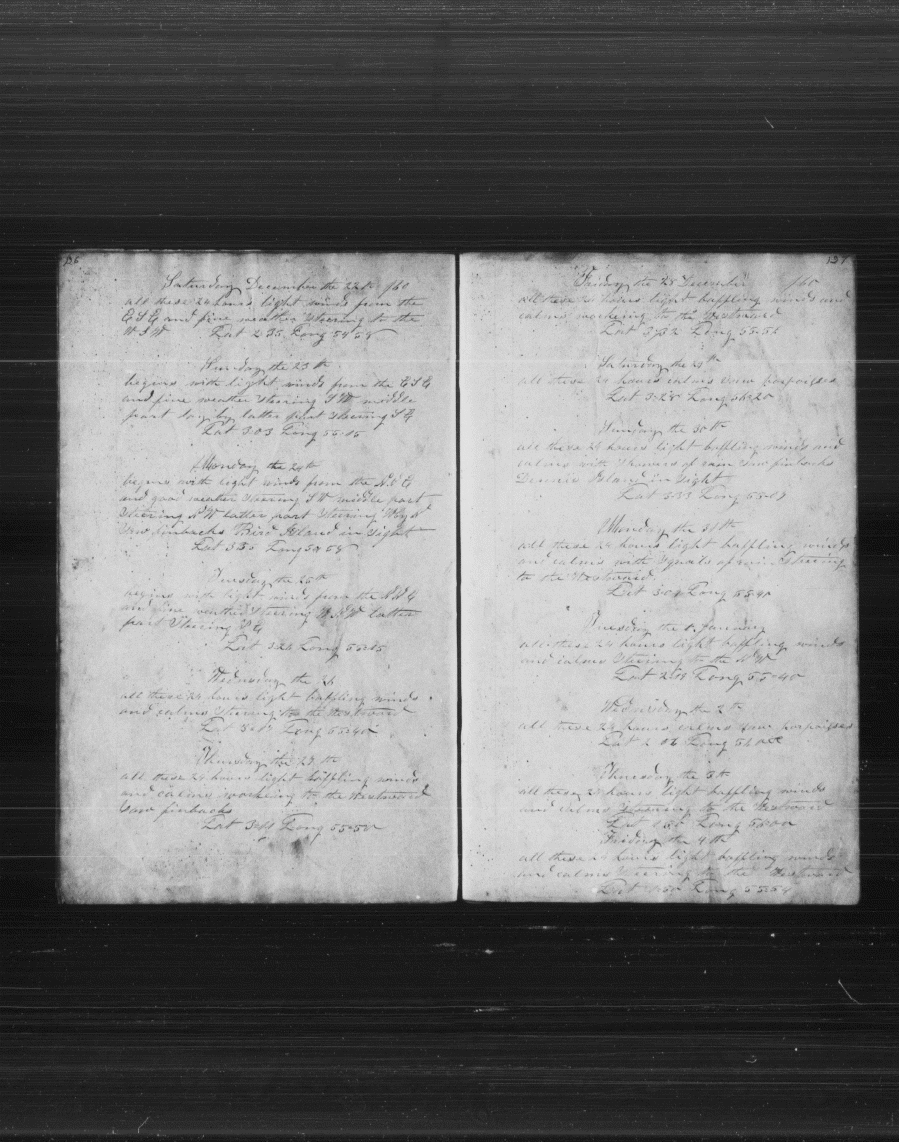 136
Saturday December the 22th /60
all these 24 hours light winds from the
E S E and fine weather Steering to the
W S W Lat 2-35 Long 54 58
Sunday the 23th
begins with light winds from the E S E
and fine weather Steering S W middle
part lay by latter part Steering S E
Lat 3 03 Long 55-05
Monday the 24th
begins with light winds from the
and good weather Steering S W middle part
Steering N W latter part Steering
Saw finbacks Bird Island in Sight
Lat Long
Tuesday the 25th
begins with light winds from the
and fine weather Steering W N W latter
part Steering S E
Lat Long
Wednesday the 26
all these 24 hours light baffling winds
and calms Steering to the Westward
Lat Long
Thursday the 27th
all these 24 hours light baffling winds
and calms working to the Westward
Saw finbacks
Lat Long 55-50
137
Friday the 28 December /60
all these 24 hours light baffling winds and
calms working to the Westward
Lat Long
Saturday the 29th
all these 24 hours calms Saw porpoises
Lat 3-28 Long
Sunday the 30th
all these 24 hours light baffling winds and
calms with Showers of rain Saw finbacks
Dennis Island in Sight
Lat Long
Monday the 31th
all these 24 hours light baffling winds
and calms with Squals of rain Steering
to the Westward
Lat Long
Tuesday the 1. January
all these 24 hours light baffling winds
and calms Steering to the N W
Lat Long 55-40
Wednesday the 2th
all these 24 hours calms Saw porpoises
Lat Long
Thursday the 3th
all these 24 hours light baffling winds
and calms Steering to the Westward
Lat Long
Friday the 4th
all these 24 hours light baffling winds
and calms Steering to the Westward
Lat Long 55-54